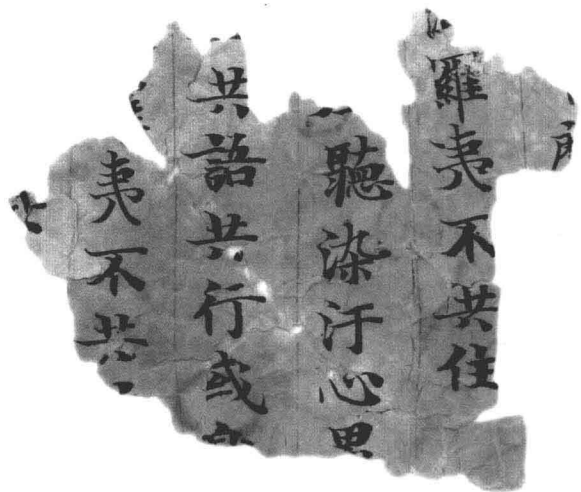 羅夷不共住
聽染汙心男
共語共行或
夷不共